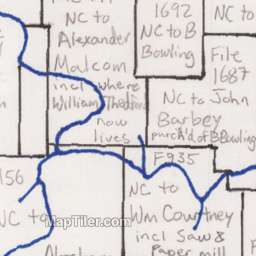 NC to
Alexander
Malcom
incl where
William Thedford
now
lives
1692
NC to B
Bowling
NC to
File
1687
NC to John
Barbey
purch'd of B Bowling
F935
NC to
Wm Courtney
incl Saw &
Paper mill
156
NC to
MapTiler.com